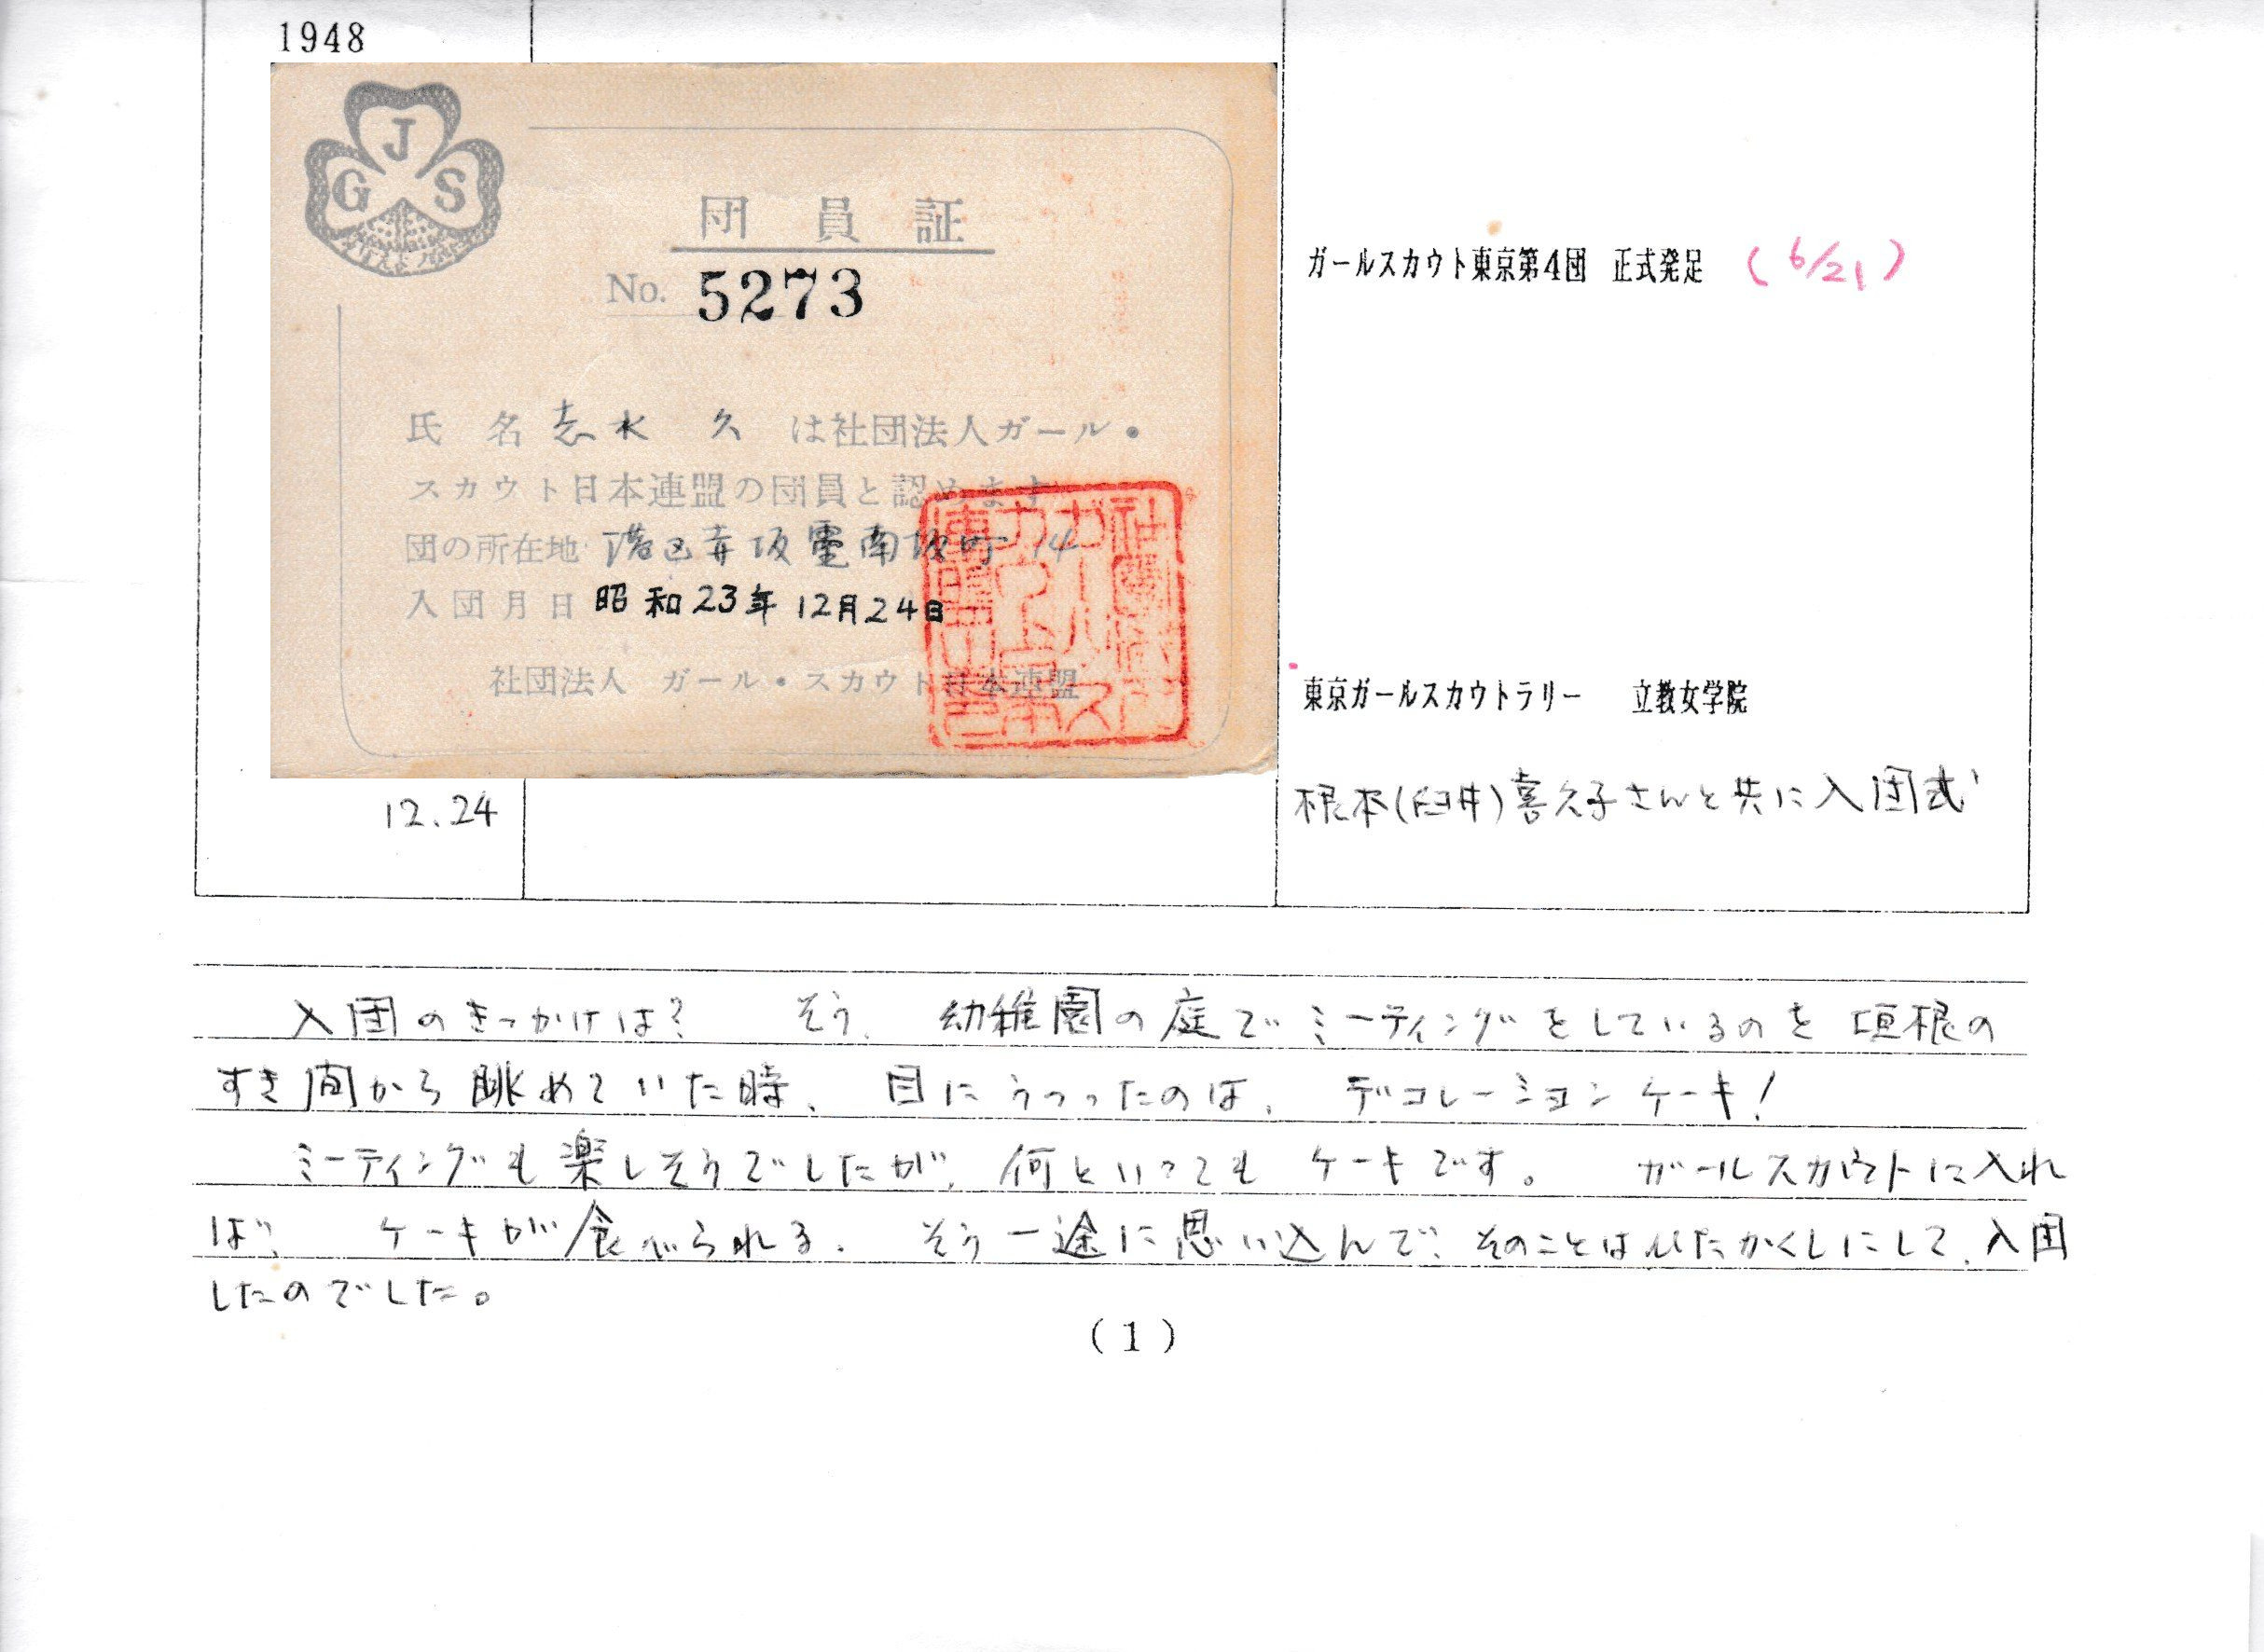 1948
J
G S
団員証
No. 5273
氏 名 志水 久 は社団法人ガール・
スカウト日本連盟の団員と認めます
団の所在地 港区赤坂霊南坂町 14
入団月日 昭和23年 12月24日
社団法人 ガール・スカウト日本連盟
ガールスカウト東京第4団 正式発足 (6/21)
東京ガールスカウトラリー 立教女学院
12.24
根本(臼井)喜久子さんと共に入団式
入団のきっかけは? そう、幼稚園の庭でミーティングをしているのを垣根の
すき間から眺めていた時、目にうつったのは、デコレーションケーキ!
ミーティングも楽しそうでしたが、何といってもケーキです。 ガールスカウトに入れ
ば、ケーキが食べられる。そう一途に思い込んで、そのことはひたかくしにして、入団
したのでした。
(1)